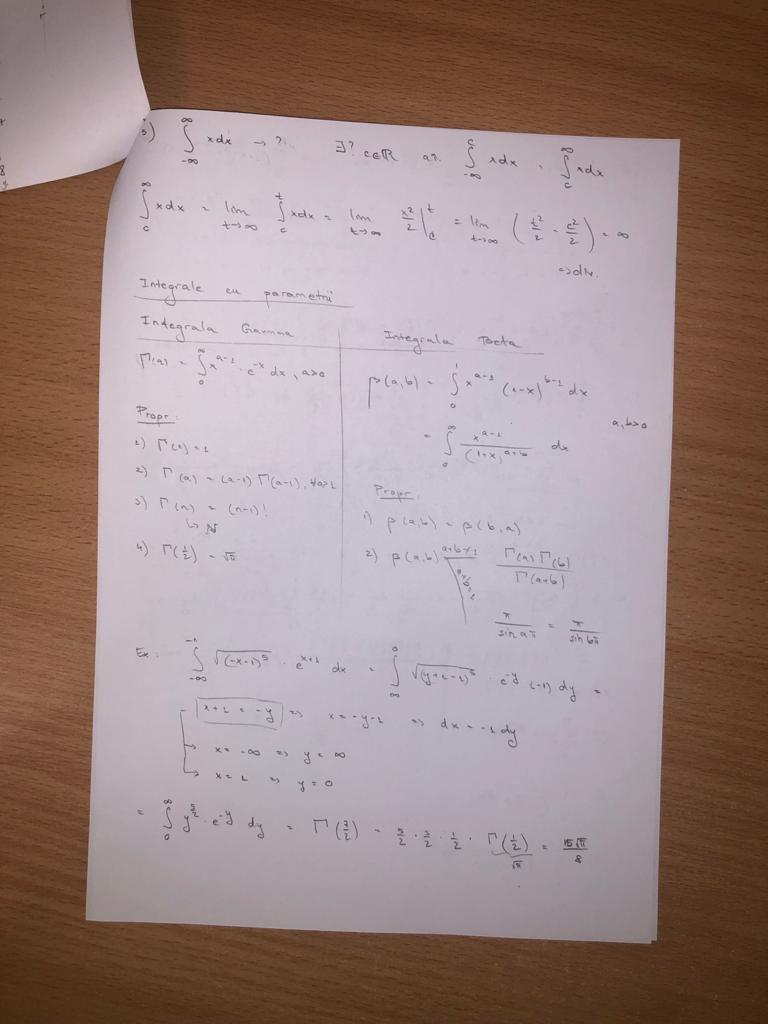 5) ∫_{-∞}^{∞} x dx → ? ∃? c∈ℝ a?. ∫_{-∞}^{c} x dx , ∫_{c}^{∞} x dx
∫_{c}^{∞} x dx = lim_{t→∞} ∫_{c}^{t} x dx = lim_{t→∞} x²/2 |_{c}^{t} = lim_{t→∞} (t²/2 - c²/2) = ∞
=> div.
Integrale cu parametrii
Integrala Gamma
Γ(a) = ∫_{0}^{∞} x^{a-1} · e^{-x} dx, a>0
Propr:
1) Γ(1) = 1
2) Γ(a) = (a-1) Γ(a-1), ∀a>1
3) Γ(n) = (n-1)!
↳ ℕ
4) Γ(1/2) = √π
Integrala Beta
β(a,b) = ∫_{0}^{1} x^{a-1} (1-x)^{b-1} dx
a,b>0
= ∫_{0}^{∞} x^{a-1}/(1+x)^{a+b} dx
Propr:
1) β(a,b) = β(b,a)
2) β(a,b) = (a+b≠1) Γ(a)Γ(b)/Γ(a+b)
a+b=1 π/sin aπ = π/sin bπ
Ex: ∫_{-∞}^{-1} √(-x-1)^5 · e^{x+1} dx = ∫_{∞}^{0} √(y+1-1)^5 · e^{-y} (-1) dy =
x+1 = -y => x = -y-1 => dx = -1 dy
x = -∞ => y = ∞
x = 1 => y = 0
= ∫_{0}^{∞} y^{5/2} · e^{-y} dy = Γ(7/2) = 5/2 · 3/2 · 1/2 · Γ(1/2) = 15√π/8
√π